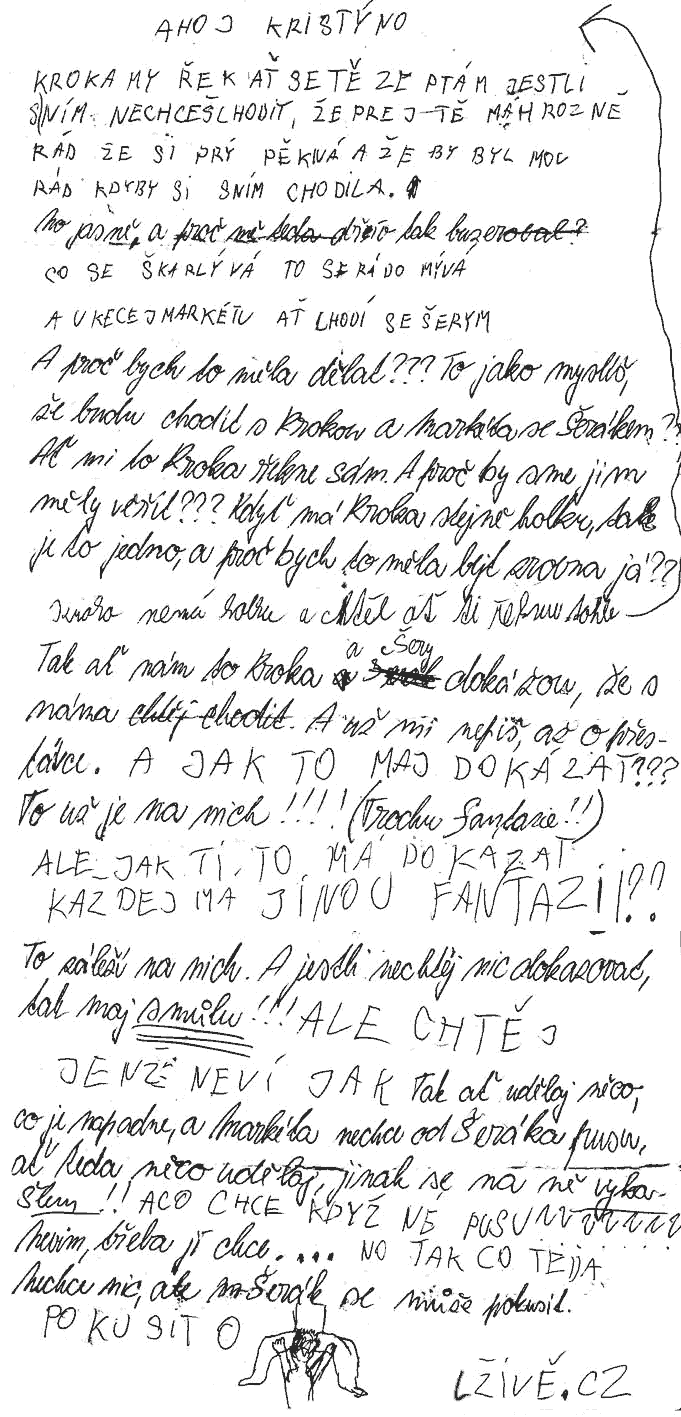 AHOJ KRISTÝNO
KROKA MY ŘEK AŤ SE TĚ ZE PTÁM JESTLI
S NÍM NECHCEŠ LHODIT, ŽE PREJ TĚ MÁ HROZNĚ
RÁD ŽE SI PRÝ PĚKNÁ A ŽE BY BYL MOC
RÁD KDYBY SI SNÍM CHODILA.
No jasně, a proč mě teda dřív tak buzeroval?
CO SE ŠKARLÝVÁ TO SE RÁDO MÝVÁ
A UKECEJ MARKÉTU AŤ LHODÍ SE ŠERYM
A proč bych to měla dělat??? To jako myslíš,
že budu chodit s Krokou a Markéta se Šerákem??
Ať mi to Kroka řekne sám. A proč by sme jim
měly věřit??? Když má Kroka stejně holku, tak
je to jedno, a proč bych to měla být zrovna já??
nemá holku a chtěl ať ti řeknu tohle
Tak ať nám to Kroka a Šery dokážou, že s
náma chtěj chodit. A už mi nepiš, až o přes-
távce. A JAK TO MAJ DOKÁZAT???
To už je na nich!!!! (Trochu fantazie!!)
ALE JAK TI TO MÁ DOKÁZAT
KAŽDEJ MA JINOU FANTAZII??
To záleží na nich. A jestli nechtěj nic dokazovat,
tak maj smůlu!!! ALE CHTĚJ
JENŽE NEVÍ JAK Tak ať udělaj něco,
co je napadne, a Markéta nechce od Šeráka pusu,
ať teda něco udělaj, jinak se na ně vyka-
šlem!! A CO CHCE KDYŽ NE PUSU
Nevim, třeba jí chce.... NO TAK CO TEDA
Nechce nic, ale Šerák se může pokusit.
POKUSIT O
LŽIVĚ.CZ